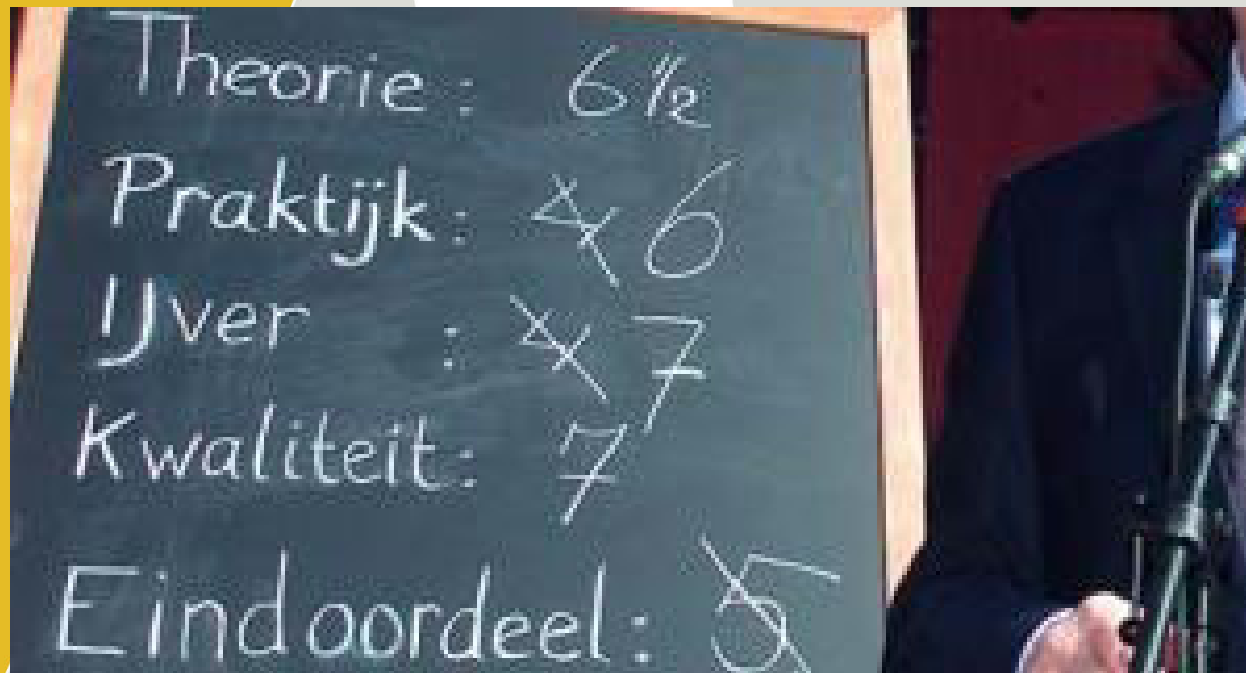 Theorie: 6½
Praktijk: 4 6
IJver : 4 7
Kwaliteit: 7
Eindoordeel: 5